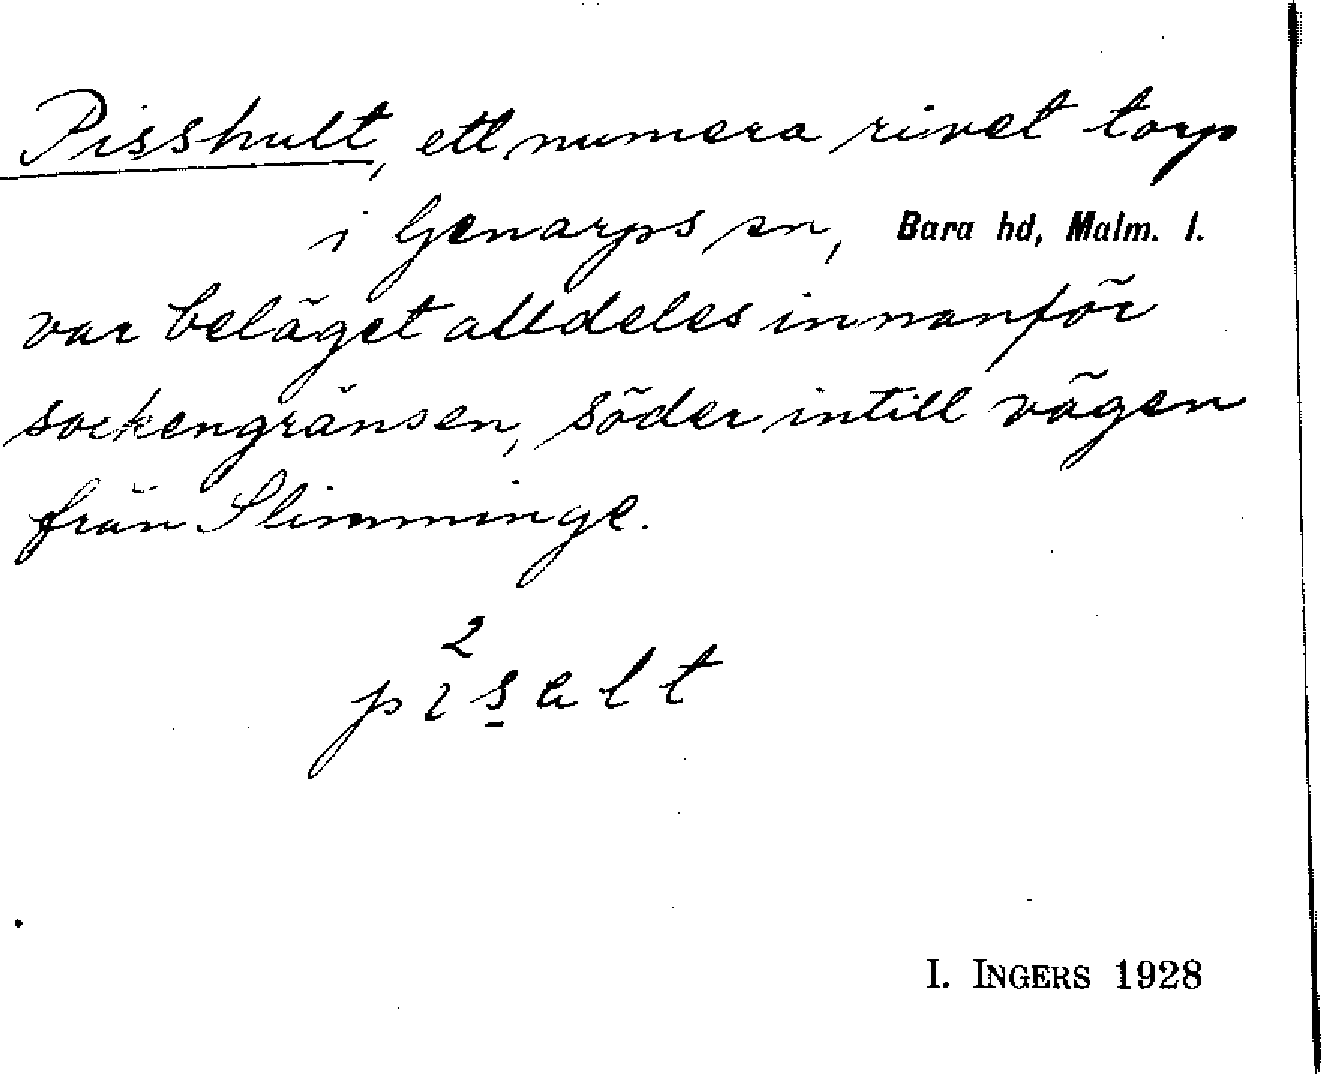 Pisshult, ett numera rivet torp
i Genarps sn, Bara hd, Malm. l.
var beläget alldeles innanför
sockengränsen, söder intill vägen
från Slimminge.
2
pısalt
I. INGERS 1928